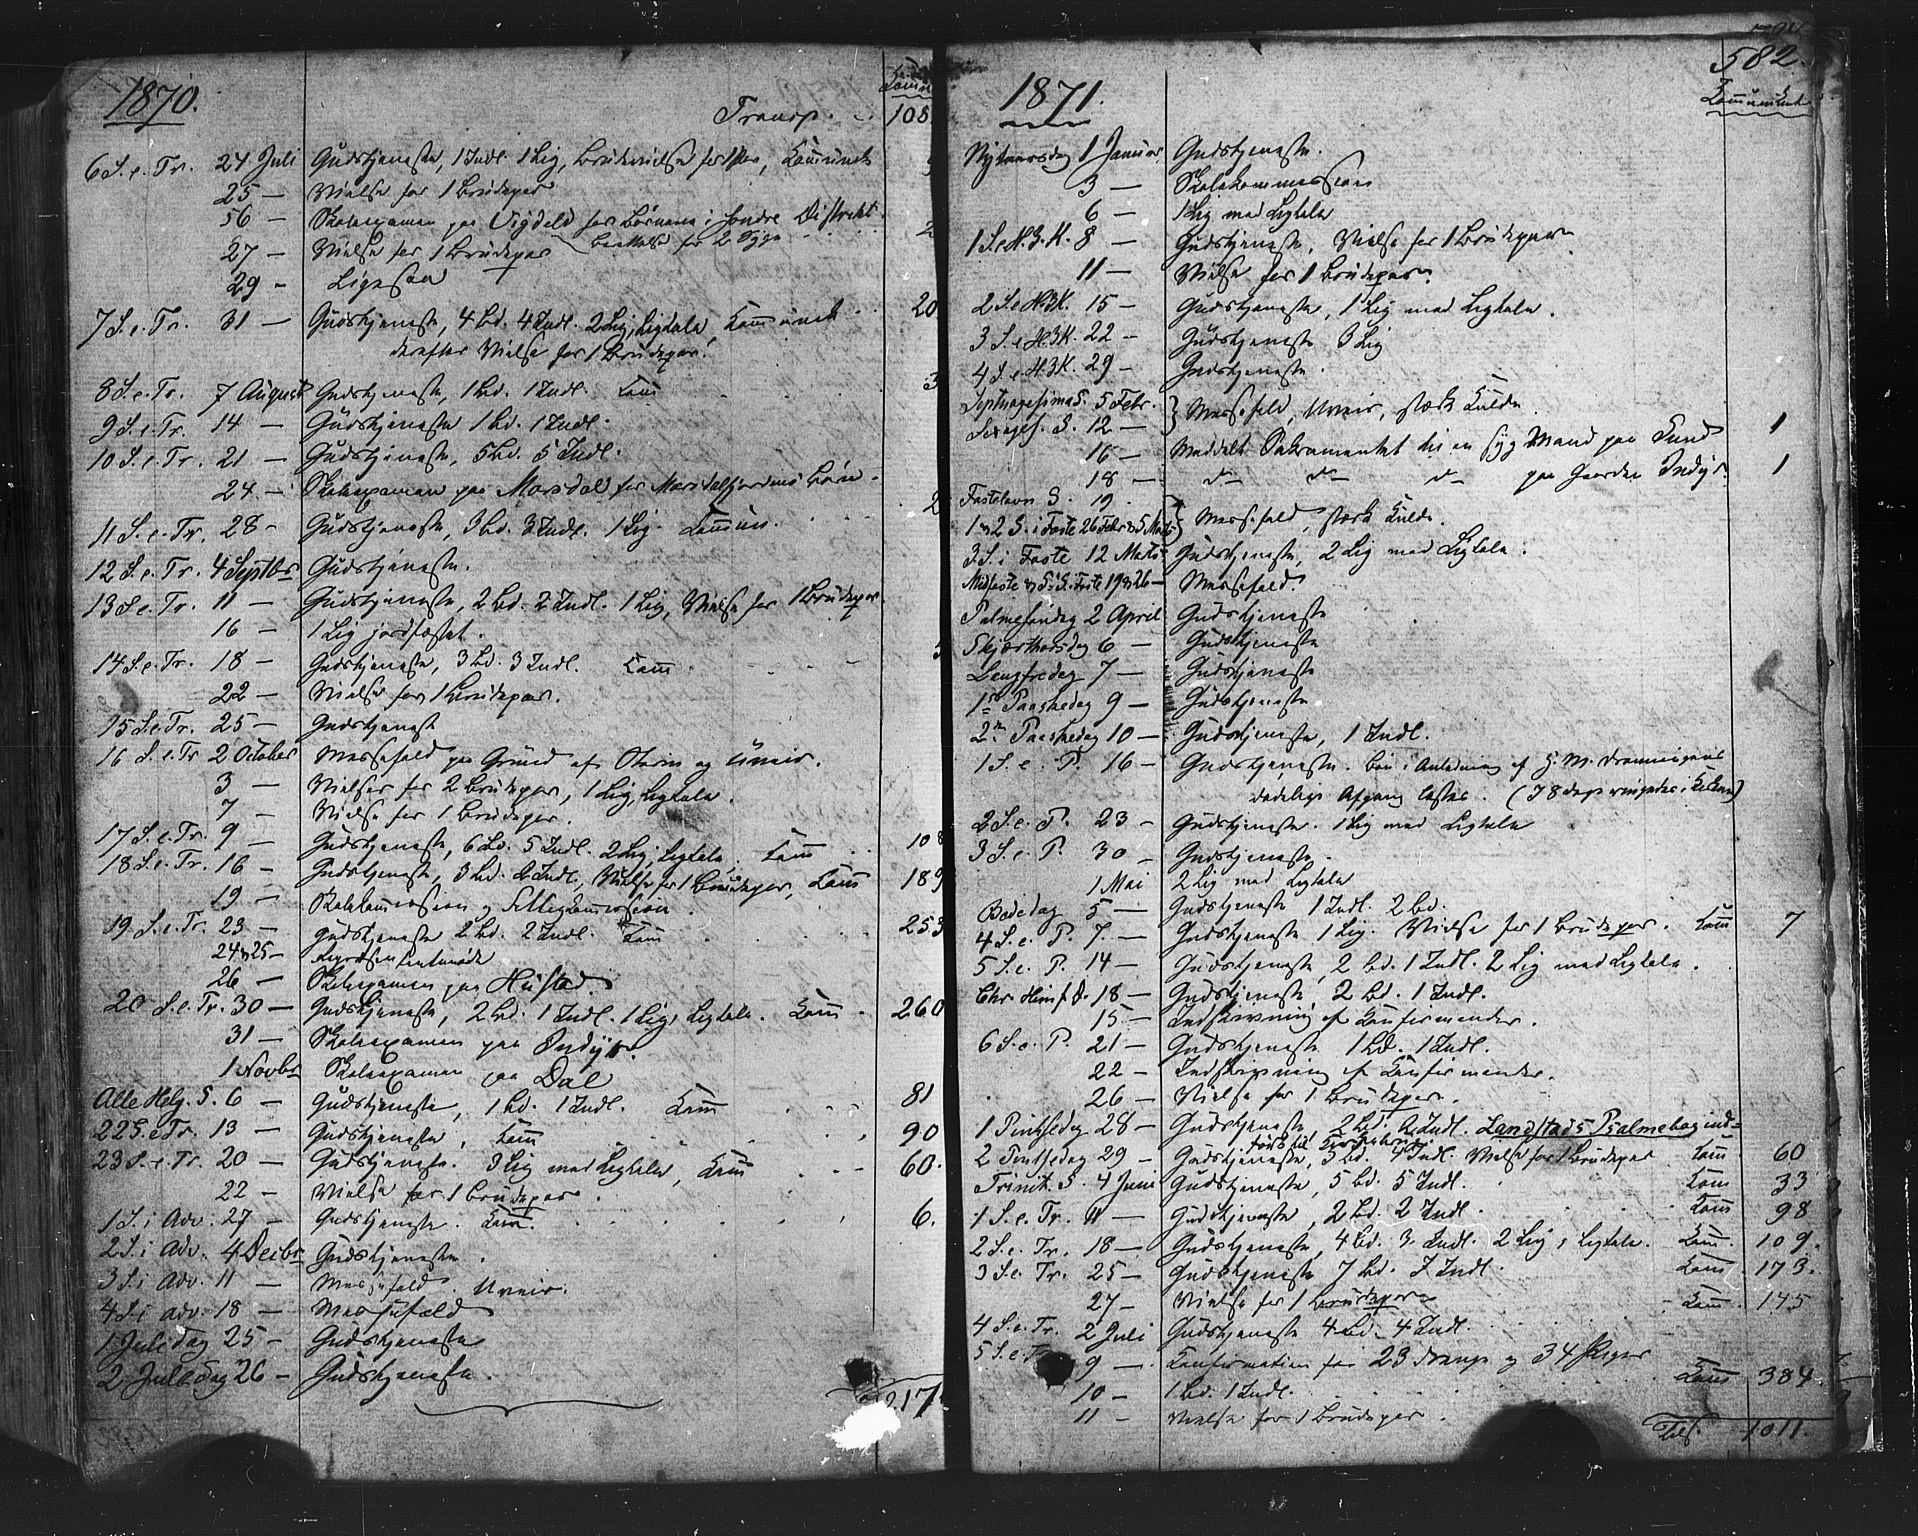 1870.
Transp. 108
6 S. e. Tr. 24 Juli Gudstjeneste, 1 Indl. 1 Lig, Brudevielse for 1 Par, Communic.
25 — Vielse for 1 Brudepar
56 — Skoleexamen paa Vigdel for Børnene i søndre District.
27 — Vielse for 1 Brudepar Besøgelse for 2 Syge 2
29 — Ligessaa
7 S. e. Tr. 31 — Gudstjeneste, 4 Bd. 4 Indl. 2 Lig, Ligtale, Communic. 20
derefter Vielse for 1 Brudepar.
8 S. e. Tr. 7 August Gudstjeneste, 1 Bd. 1 Indl. Com 3
9 S. e. Tr. 14 — Gudstjeneste 1 Bd. 1 Indl.
10 S. e. Tr. 21 — Gudstjeneste, 5 Bd. 5 Indl.
24 — Skoleexamen paa Morsdal for Morsdalfjordens Børn.
11 S. e. Tr. 28 — Gudstjeneste, 3 Bd. 3 Indl. 1 Lig. Commun. 2
12 S. e. Tr. 4 Septbr Gudstjeneste.
13 S. e. Tr. 11 — Gudstjeneste, 2 Bd. 2 Indl. 1 Lig, Vielse for 1 Brudepar.
16 — 1 Lig jordfæstet.
14 S. e. Tr. 18 — Gudstjeneste, 3 Bd. 3 Indl. Com.
22 — Vielse for 1 Brudepar.
15 S. e. Tr. 25 — Gudstjeneste
16 S. e. Tr 2 October Messefald paa Grund af Storm og Uveir.
3 — Vielser for 2 Brudepar, 1 Lig, Ligtale.
7 — Vielse for 1 Brudepar.
17 S. e. Tr. 9 — Gudstjeneste, 6 Bd. 5 Indl. 2 Lig, Ligtale. Com 108
18 S. e. Tr. 16 — Gudstjeneste, 3 Bd. 2 Indl., Vielse for 1 Brudepar, Com 189
19 — Skolecommission og Fattigcommission.
19 S. e. Tr. 23 — Gudstjeneste 2 Bd. 2 Indl. Com 253
24 & 25 —
26 — Skoleexamen paa Hustad.
20 S. e. Tr. 30 — Gudstjeneste, 2 Bd. 1 Indl. 1 Lig, Ligtale. Com 260
31 — Skoleexamen paa Indyr.
1 Novbr Skoleexamen paa Dal
Alle Helg. S. 6 — Gudstjeneste, 1 Bd. 1 Indl. Com 81
22 S. e Tr. 13 — Gudstjeneste, Com 90
23 S. e. Tr. 20 — Gudstjeneste. 3 Lig med Ligtale, Com 60.
22 — Vielse for 1 Brudepar.
1 S. i Adv. 27 — Gudstjeneste. Com. 6.
2 S. i Adv. 4 Decbr Gudstjeneste.
3 S. i Adv. 11 — Messefald. Uveir.
4 S. i Adv. 18 — Messefald
1 Juledag 25 — Gudstjeneste
2 Juledag 26 — Gudstjeneste.
217
582.
1871.
Communicant
Nytaarsdag 1 Januar Gudstjeneste.
3 — Skolekommission
6 — 1 Lig med Ligtale
1 S. e H. 3. K. 8 — Gudstjeneste, Vielse for 1 Brudepar.
11 — Vielse for 1 Brudepar.
2 S. e H. 3 K. 15 — Gudstjeneste, 1 Lig med Ligtale.
3 S. e H. 3 K. 22 — Gudstjeneste 3 Lig
4 S. e H. 3 K. 29 — Gudstjeneste.
Septuagesima S. 5 Febr. } Messefald, Uveir, stærk Kulde.
Sexages. S. 12 —
16 — Meddelt Sakramentet til en syg Mand paa Sund 1
18 — do do do paa Gaarden Indyr. 1
Fastelavn S. 19.
1 & 2 S. i Faste 26 Febr & 5 Marts } Messefald, stærk Kulde.
3 S. i Faste 12 Marts Gudstjeneste, 2 Lig med Ligtale.
Midfaste & 5 S. i Faste 19 & 26 — Messefald.
Palmesøndag 2 April Gudstjeneste
Skjærthorsdag 6 — Gudstjeneste
Langfredag 7 — Gudstjeneste
1ste Paaskedag 9 — Gudstjeneste
2den Paaskedag 10 — Gudstjeneste, 1 Indl.
1 S. e. P. 16 — Gudstjeneste. Bøn i Anledning af H. M. Dronningens
dødelige Afgang læstes. (I 8 dage ringedes i Kirken)
2 S. e. P. 23 — Gudstjeneste. 1 Lig med Ligtale
3 S. e. P. 30 — Gudstjeneste.
1 Mai 2 Lig med Ligtale
Bededag 5 — Gudstjeneste 1 Indl. 2 Bd.
4 S. e. P. 7 — Gudstjeneste 1 Lig. Vielse for 1 Brudepar. Com 7
5 S. e. P. 14 — Gudstjeneste, 2 Bd. 1 Indl. 2 Lig med Ligtale.
Chr Himf. D. 18 — Gudstjeneste, 2 Bd. 1 Indl.
15 — Indskrivning af Confirmander.
6 S. e. P. 21 — Gudstjeneste 1 Bd. 1 Indl.
22 — Indskrivning af Confirmander.
26 — Vielse for 1 Brudepar.
1 Pinsedag 28 — Gudstjeneste, 2 Bd. 2 Indl. Landstads Psalmebog ind=
ført til Kirkebrug.
2 Pintsedag 29 — Gudstjeneste, 3 Bd. 4 Indl. Vielse for 1 Brudepar Com 60
Trinit. S. 4 Juni Gudstjeneste, 5 Bd. 5 Indl. Com 33
1 S. e. Tr. 11 — Gudstjeneste, 2 Bd. 2 Indl. Com 98
2 S. e. Tr. 18 — Gudstjeneste, 4 Bd. 3 Indl. 2 Lig, Ligtale. Com. 109.
3 S. e. Tr. 25 — Gudstjeneste 7 Bd. 7 Indl. Com. 173.
27 — Vielse for 1 Brudepar Com. 145
4 S. e. Tr. 2 Juli Gudstjeneste 4 Bd. 4 Indl.
5 S. e. Tr 9 — Confirmation for 23 Drenge og 34 Piger Com 384.
10 — 1 Bd. 1 Indl.
11 — Vielse for 1 Brudepar.
Tils. 1011.